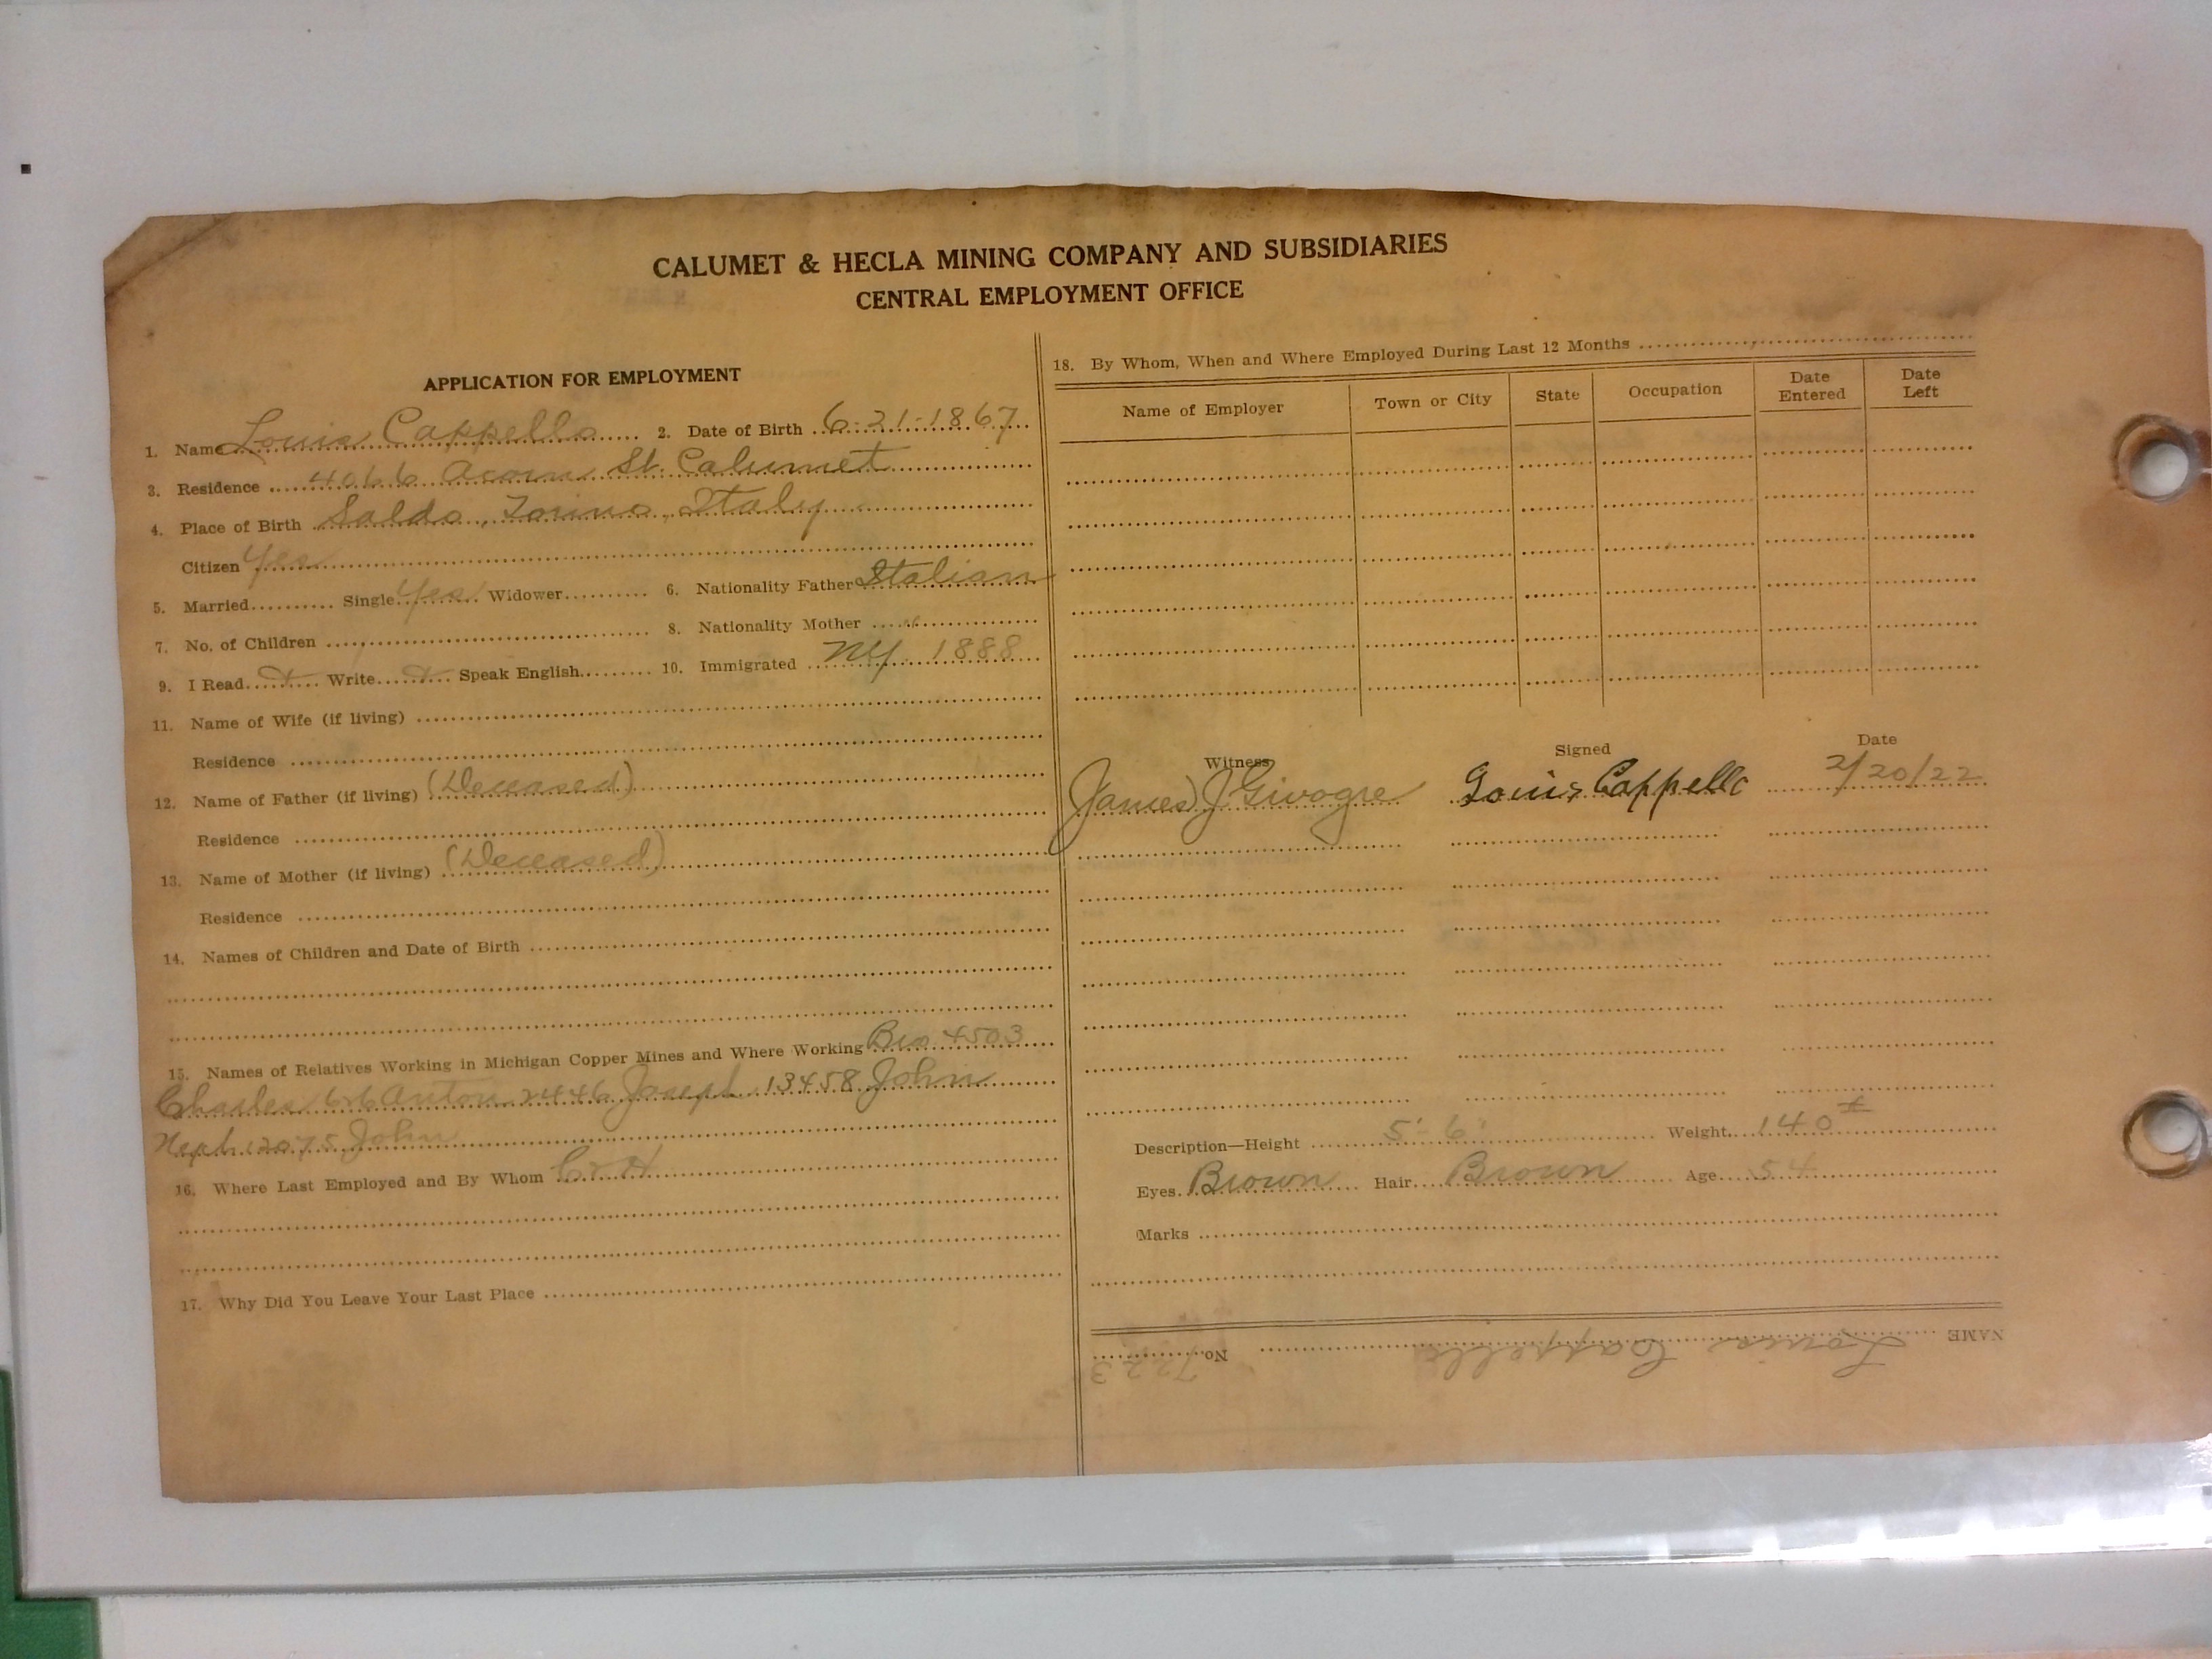 CALUMET & HECLA MINING COMPANY AND SUBSIDIARIES
CENTRAL EMPLOYMENT OFFICE
APPLICATION FOR EMPLOYMENT
1. Name Louis Cappello 2. Date of Birth 6-21-1867
3. Residence 4066 Acorn St. Calumet
4. Place of Birth Saldo, Torino, Italy
Citizen Yes
5. Married Single Yes Widower 6. Nationality Father Italian
7. No. of Children 8. Nationality Mother "
9. I Read Write Speak English 10. Immigrated NY. 1888
11. Name of Wife (if living)
Residence
12. Name of Father (if living) (Deceased)
Residence
13. Name of Mother (if living) (Deceased)
Residence
14. Names of Children and Date of Birth
15. Names of Relatives Working in Michigan Copper Mines and Where Working Bro 4503
Charles 626 Anton 2446 Joseph 13458 John
Neph 12075 John
16. Where Last Employed and By Whom C & H
17. Why Did You Leave Your Last Place
18. By Whom, When and Where Employed During Last 12 Months
Name of Employer Town or City State Occupation Date Entered Date Left
Witness Signed Date
James J Givogre Louis Cappello 2/20/22
Description—Height 5' 6" Weight 140
Eyes Brown Hair Brown Age 54
Marks
NAME Louis Cappello No. 7223